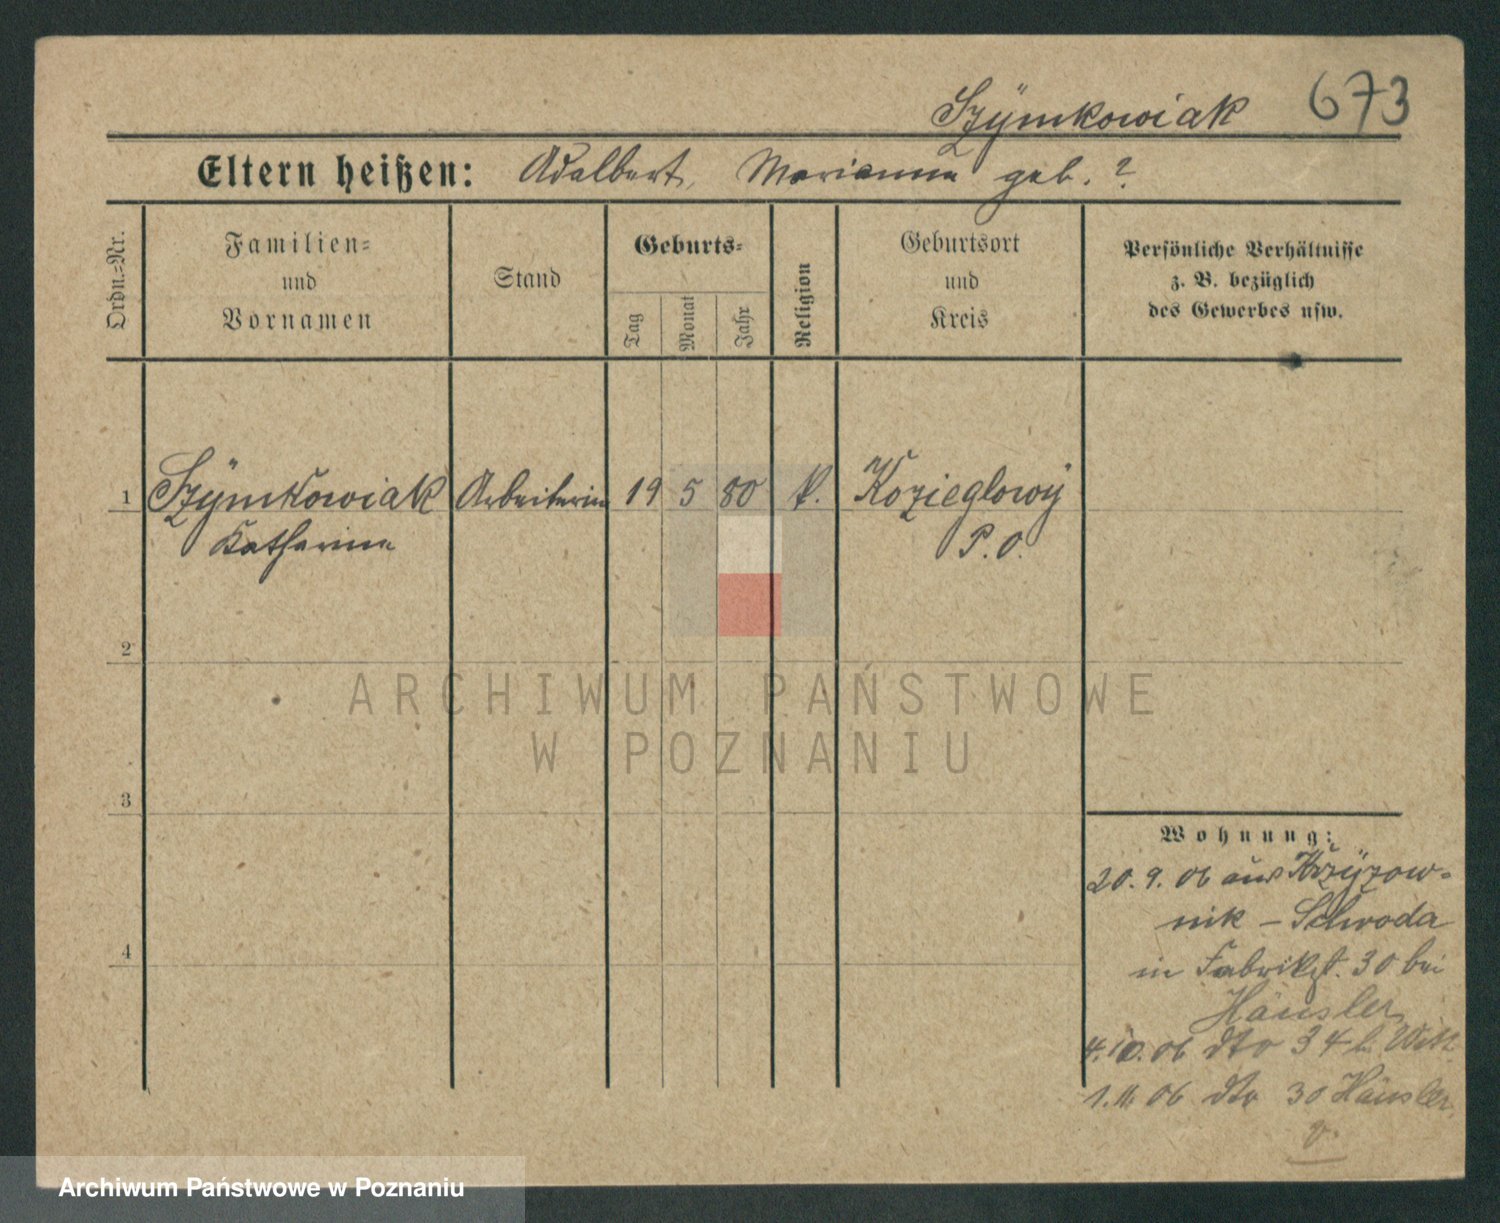 673
Szÿmkowiak
Eltern heißen: Adalbert, Marianna geb. ?
Ordn.=Nr.
Familien=
und
Vornamen
Stand
Geburts=
Tag
Monat
Jahr
Religion
Geburtsort
und
Kreis
Persönliche Verhältnisse
z. B. bezüglich
des Gewerbes usw.
1 Szÿmkowiak Arbeiterin 19 5 80 k. Kozieglowÿ
Katharina P. O.
2
3
4
Wohnung:
20. 9. 06 aus Krzÿzow-
nik – Schroda
in Fabrikst. 30 bei
Häusler
4. 10. 06 dto 34 b.
1. 11. 06 dto 30 Häusler
ARCHIWUM PAŃSTWOWE
W POZNANIU
Archiwum Państwowe w Poznaniu